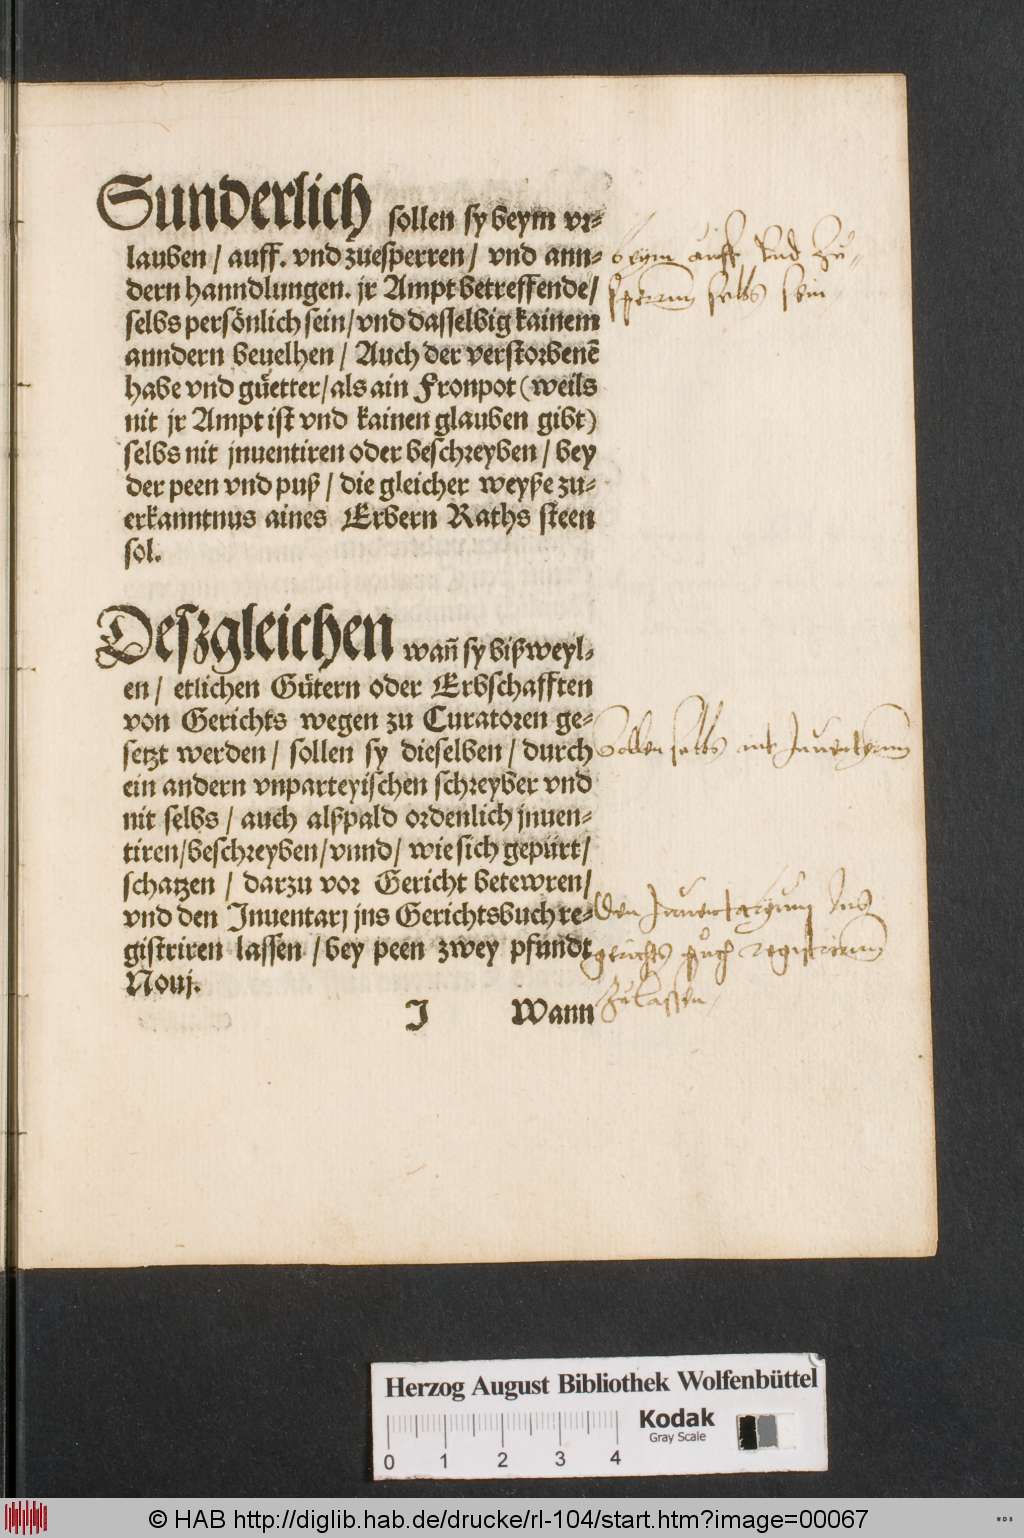 Sunderlich sollen sy beym vr-
lauben / auff. vnd zuesperren / vnd ann-
dern hanndlungen. jr Ampt betreffende /
selbs persönlich sein / vnd dasselbig kainem
anndern beuelhen / Auch der verstorbenẽ
habe vnd güetter / als ain Fronpot (weils
nit jr Ampt ist vnd kainen glauben gibt)
selbs nit jnuentiren oder beschreyben / bey
der peen vnd puß / die gleicher weyße zu-
erkanntnus aines Erbern Raths steen
sol.
beym auff vnd zu-
sperrnn selbs sein
Deszgleichen wañ sy bißweyl-
en / etlichen Gütern oder Erbschafften
von Gerichts wegen zu Curatoren ge-
setzt werden / sollen sy dieselben / durch
ein andern vnparteyischen schreyber vnd
nit selbs / auch alßpald ordenlich jnuen-
tiren / beschreyben / vnnd / wie sich gepürt /
schatzen / darzu vor Gericht betewren /
vnd den Inuentarj jns Gerichtsbuch re-
gistriren lassen / bey peen zwey pfundt
Nouj.
sollen selbs nit Inuentyrnn
den Inuentaryum Ins
gerichts puch registrirnn
zulassen
I Wann
Herzog August Bibliothek Wolfenbüttel
Kodak
Gray Scale
0 1 2 3 4
© HAB http://diglib.hab.de/drucke/rl-104/start.htm?image=00067